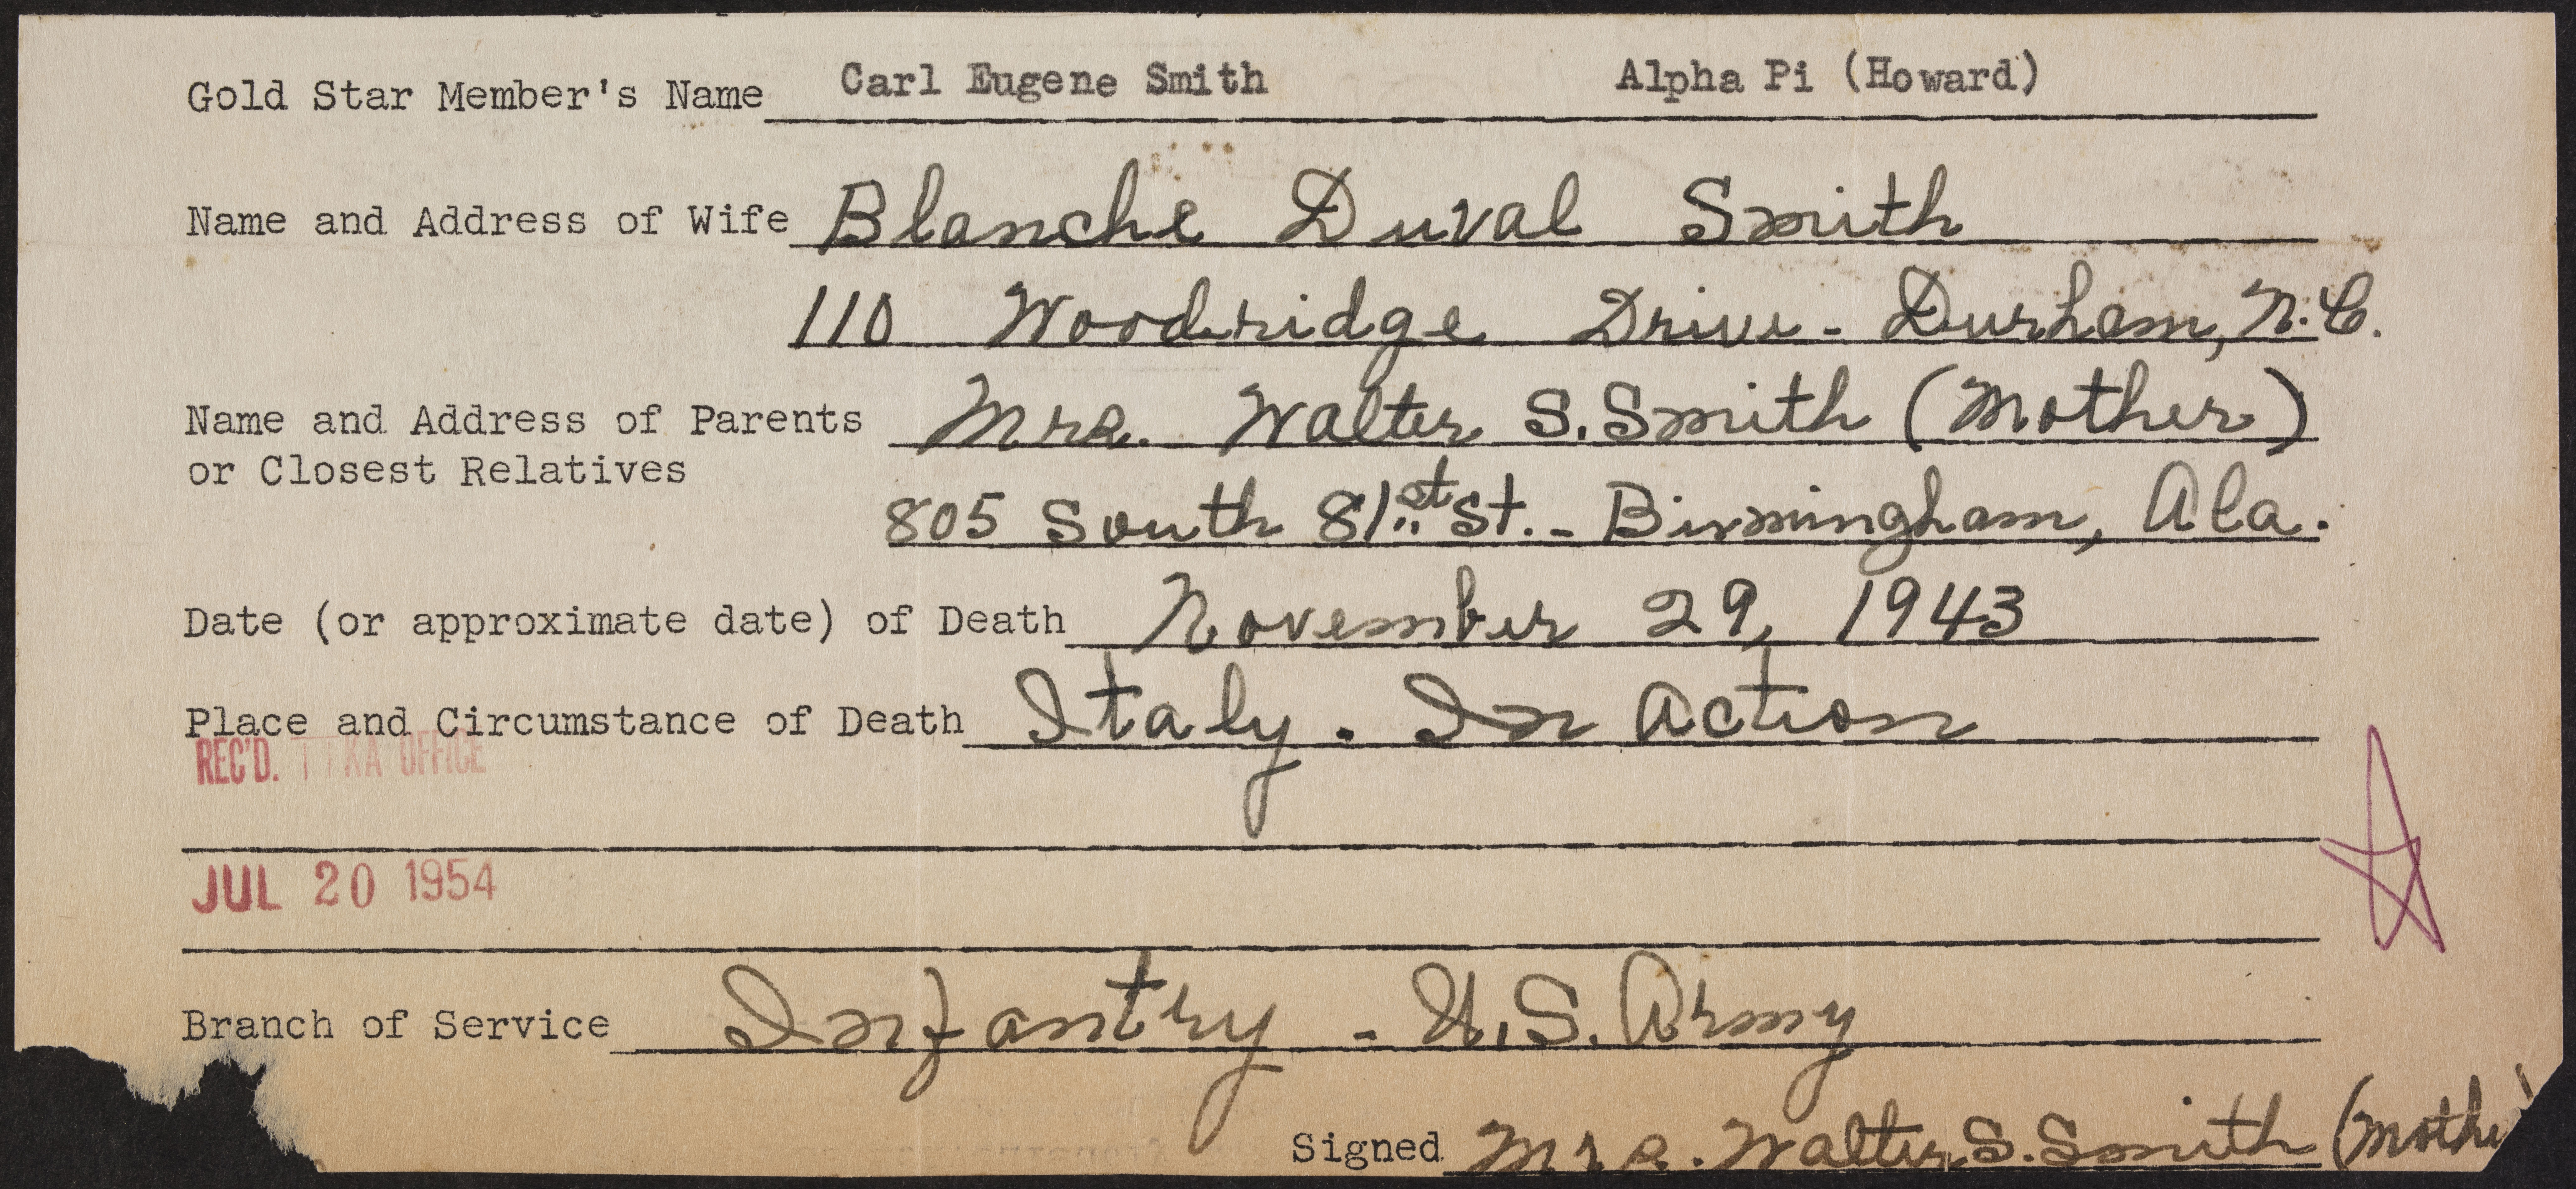 Gold Star Member's Name Carl Eugene Smith Alpha Pi (Howard)
Name and Address of Wife Blanche Duval Smith
110 Woodridge Drive - Durham, N.C.
Name and Address of Parents Mrs. Walter S. Smith (Mother)
or Closest Relatives
805 South 81st St. - Birmingham, Ala.
Date (or approximate date) of Death November 29, 1943
Place and Circumstance of Death Italy. In Action
REC'D. KA OFFICE
JUL 20 1954
Branch of Service Infantry - U.S. Army
Signed Mrs. Walter S. Smith (Mothe